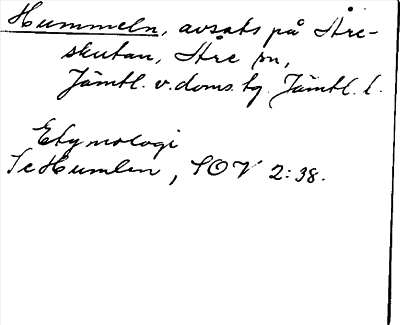 Hummeln, avsats på Åre-
skutan, Åre sn,
Jämtl. v. doms. tg. Jämtl. l.
Etymologi
Se Humlen, SOV 2:38.